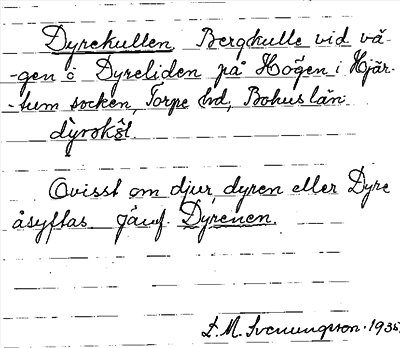 Dyrekullen, Bergkulle vid vä-
-gen ö Dyreliden på Högen i Hjär-
-tum socken, Torpe hd, Bohus län.
Ovisst om djur, dyren eller Dyre
åsyftas. Jämf Dyrenen.
S. M. Svenungsson. 1935.